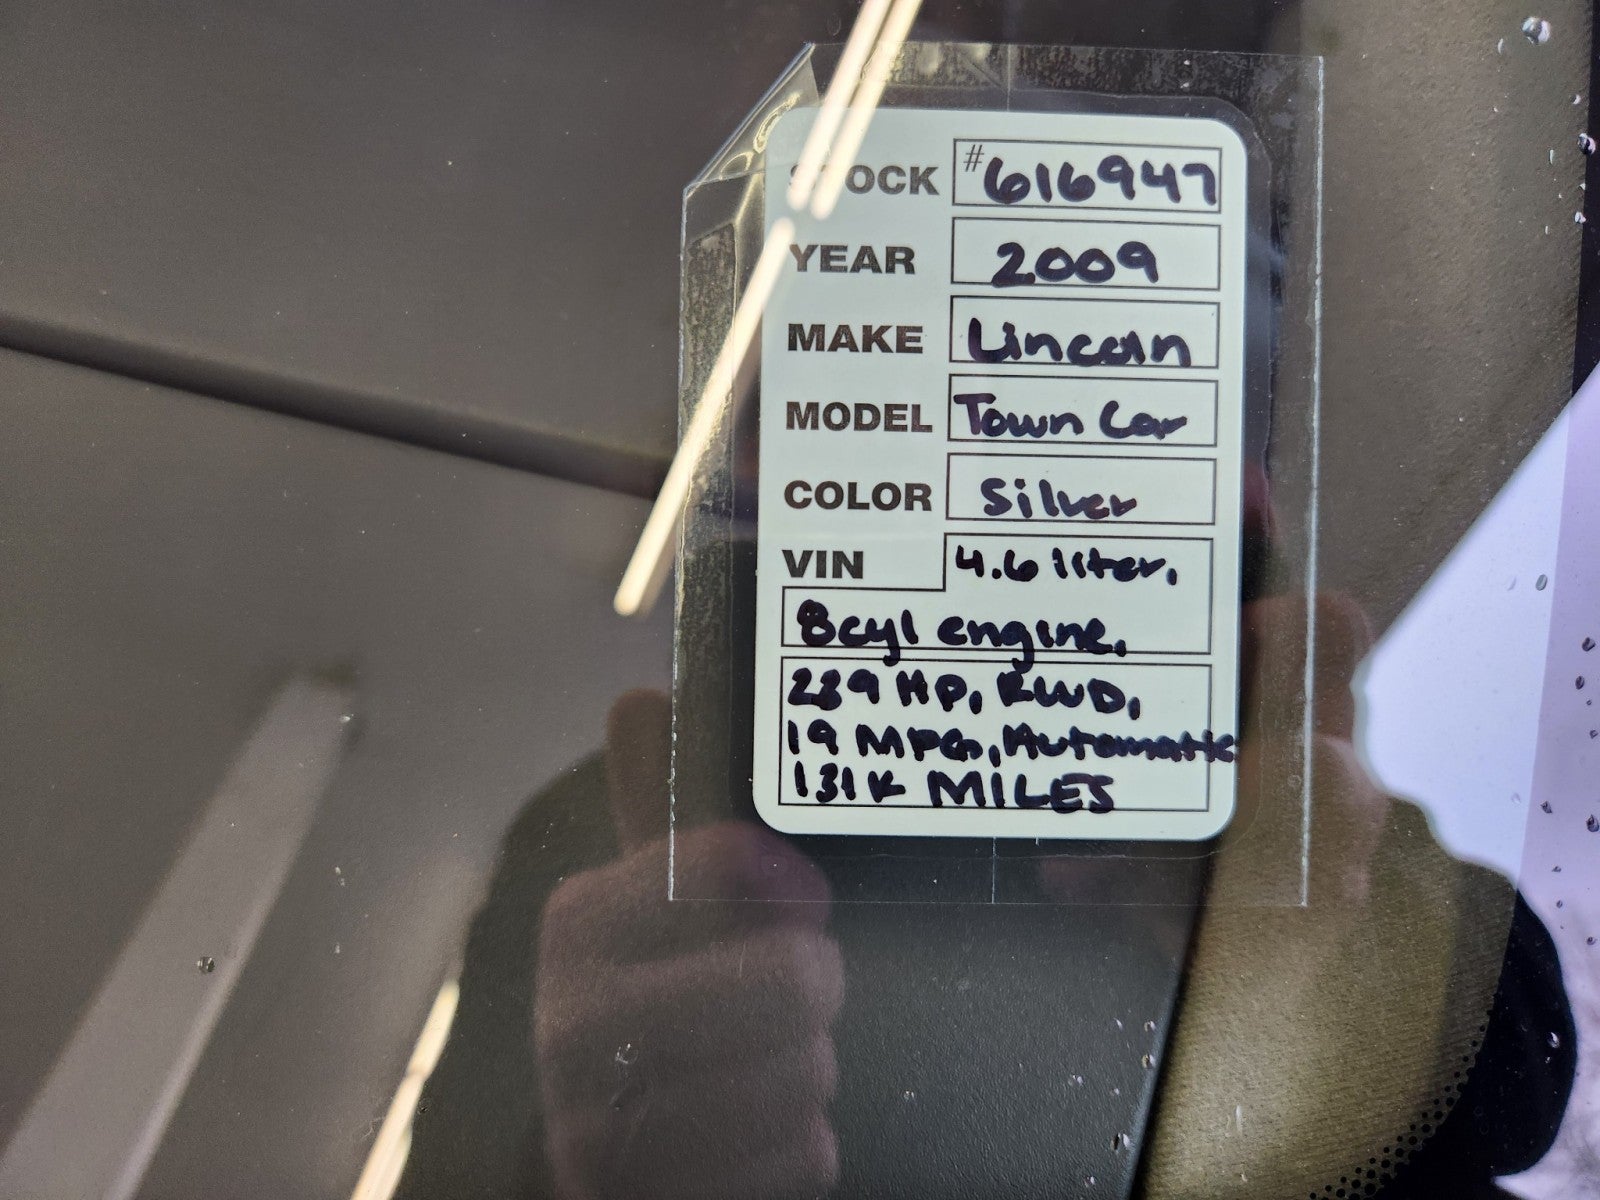 STOCK #616947
YEAR 2009
MAKE Lincoln
MODEL Town Car
COLOR Silver
VIN 4.6 liter,
8cyl engine,
239 HP, RWD,
19 MPG, Automatic
131K MILES